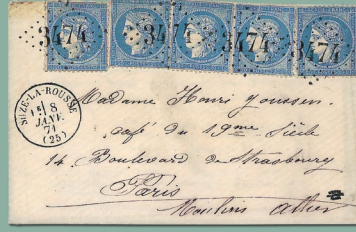 3474 3474 3474 3474
SUZE-LA-ROUSSE
1E 8
JANV.
71
(25)
Madame Henri Joussen
café du 19me Siècle
14 Boulevard de Strasbourg
Paris
Moulins allier